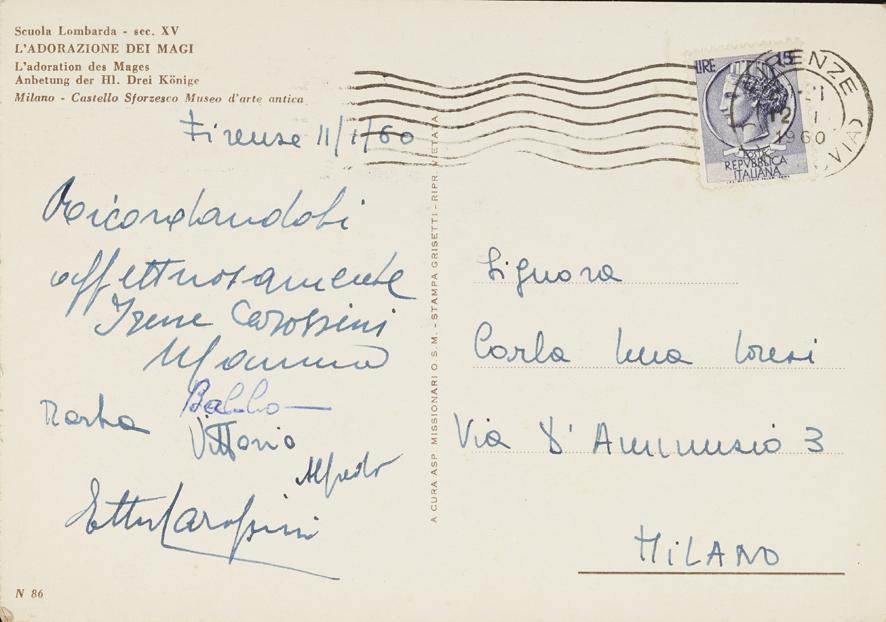 Scuola Lombarda - sec. XV
L'ADORAZIONE DEI MAGI
L'adoration des Mages
Anbetung der Hl. Drei Könige
Milano - Castello Sforzesco Museo d'arte antica
Firenze 11/1/60
Ricordandobi
affettuosamente
Irene Carossini
Mamma
Babbo
Marta
Vittorio
Alfredo
Carossini
N 86
A CURA ASP. MISSIONARI O.S.M. - STAMPA GRISETTI - RIPR. VIETATA
LIRE 15
REPVBBLICA
ITALIANA
1960
Signora
Carla
Via D'Annunzio 3
MILANO